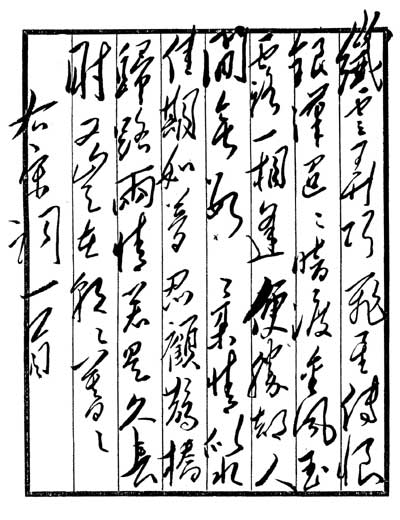 纖雲弄巧 飛星傳恨
銀漢迢々暗渡 金風玉
露一相逢 便勝却人
間無數 柔情似水
佳期如夢 忍顧鵲橋
歸路 兩情若是久長
時 又豈在朝々暮々
右宋詞一首